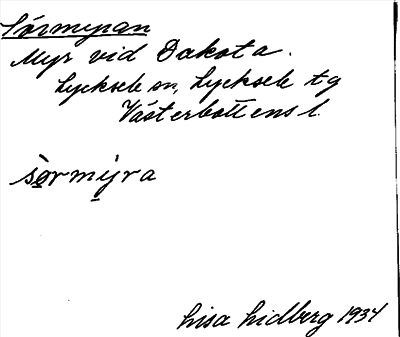 Sörmyran
Myr vid Dakota.
Lycksele sn, Lycksele tg
Västerbottens l.
sòrmýra
Lisa Lidberg 1934